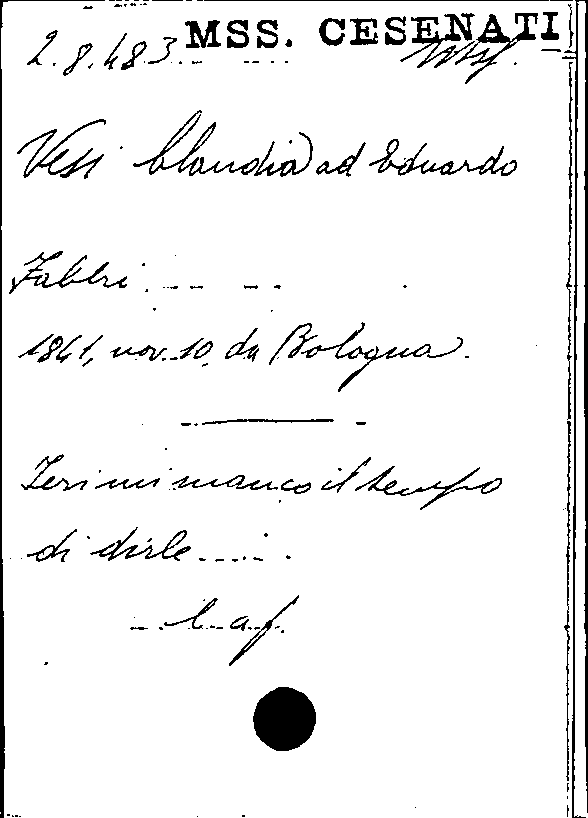 MSS. CESENATI
2.8.483.
Vesi Claudia ad Eduardo
Fabbri
1841, nov. 10, da Bologna.
Ieri mi manco il tempo
di dirle .....
c. a f.